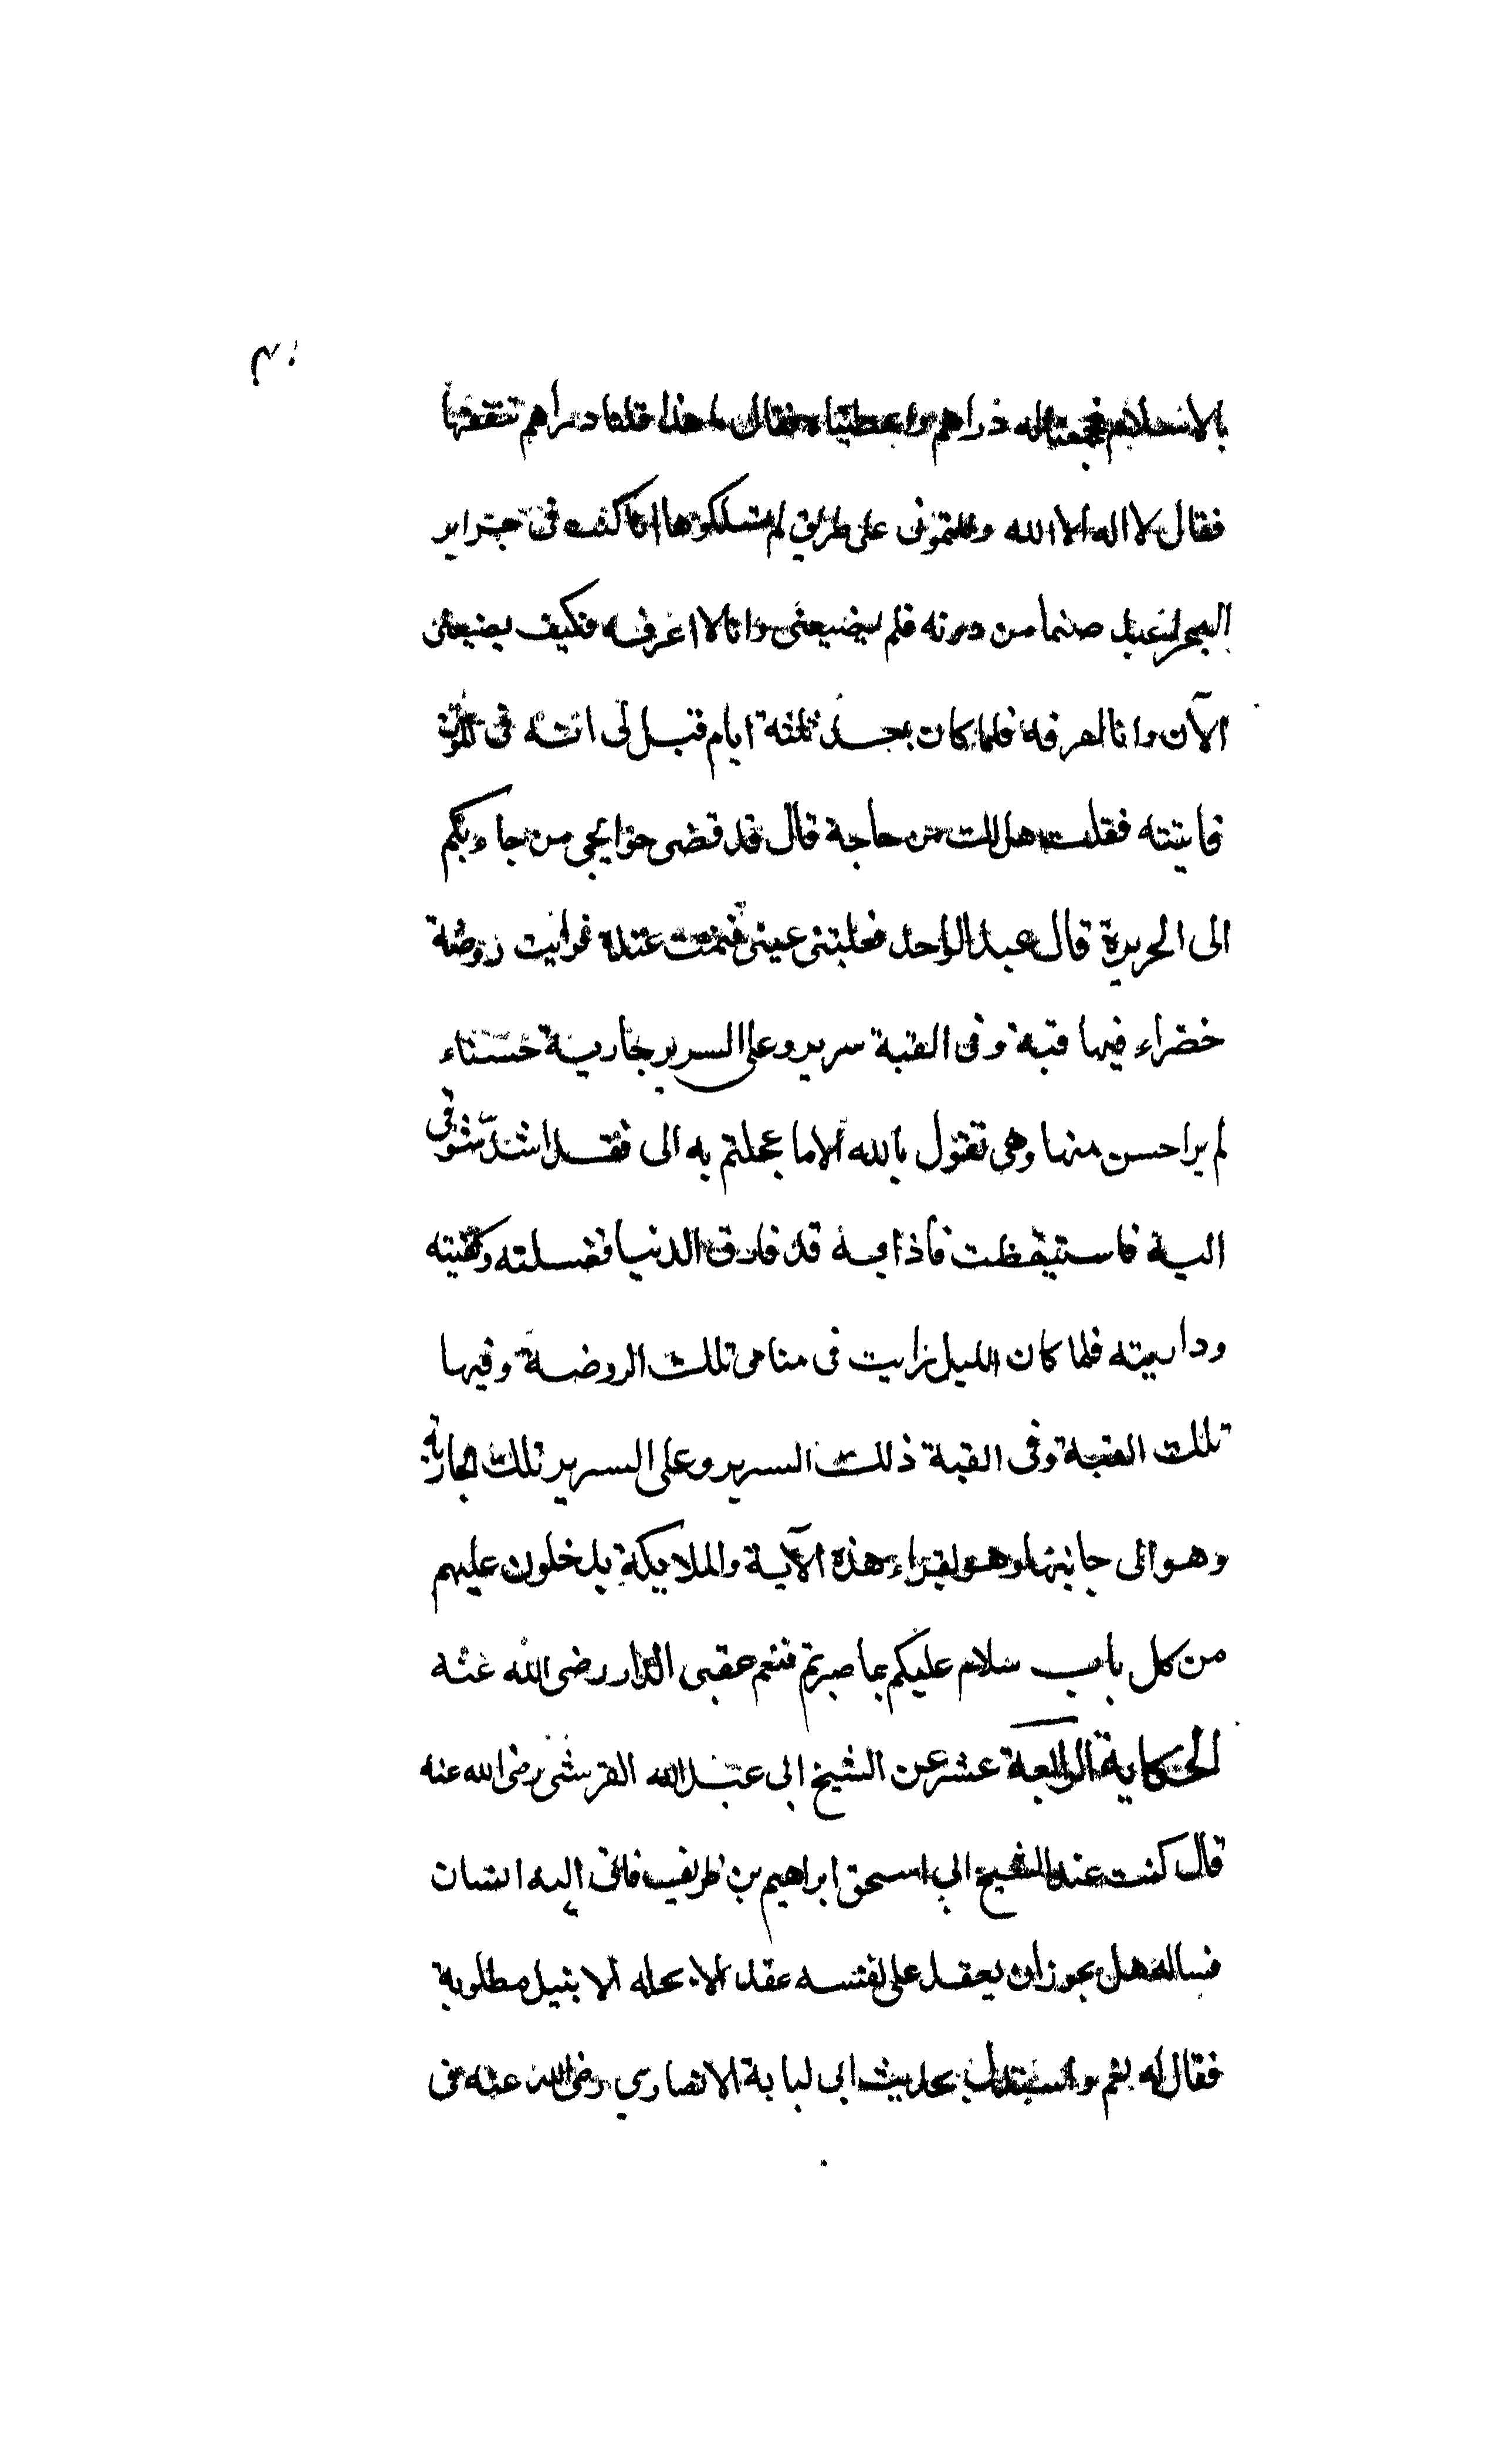 ٣٠
بالاسلام فجمعنا له دراهم واعطيناه فقال ما هذا قلنا دراهم تنفقها
فقال لا اله الا الله دللتمونى على طريق لم تسلكوها انا كنت فى جزاير
البحر اعبد صنما من دونه فلم يضيعنى وانا لا اعرفه فكيف يضيعنى
الآن وانا اعرفه فلما كان بعد ثلثة ايام قيل لى انه فى الموت
فاتيته فقلت هل لك من حاجة قال قد قضى حوايجى من جاء بكم
الى الجزيرة قال عبد الواحد فغلبتنى عينى فنمت عنده فرايت روضة
خضراء فيها قبة وفى القبة سرير وعلى السرير جارية حسناء
لم ير احسن منها وهى تقول بالله الا ما عجلتم به الى فقد اشتد شوقى
اليه فاستيقظت فاذا به قد فارق الدنيا فغسلته وكفنته
وداريته فلما كان الليل رايت فى منامى تلك الروضة وفيها
تلك القبة وفى القبة ذلك السرير وعلى السرير تلك الجارية
وهو الى جانبها وهو يقراء هذه الآية والملايكة يدخلون عليهم
من كل باب سلام عليكم بما صبرتم فنعم عقبى الدار رضى الله عنه
الحكاية الرابعة عشر عن الشيخ ابى عبد الله القرشى رضى الله عنه
قال كنت عند الشيخ ابي اسحق ابراهيم بن ظريف فاتى اليه انسان
فساله هل يجوز ان يعقد على نفسه عقدا لا يحله الا بنيل مطلوبه
فقال له نعم واستدل بحديث ابى لبابة الانصاري رضى الله عنه فى